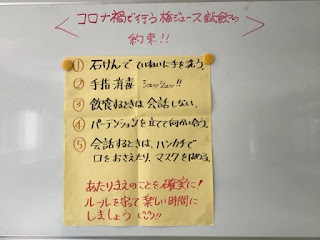 コロナ禍で行う梅ジュース試飲の
約束!!
① 石けんでていねいに手を洗う。
② 手指消毒 シュッシュッ!!
③ 飲食するときは会話しない。
④ パーテンションを立てて向かい合う。
⑤ 会話するときは、ハンカチで
口をおさえたり、マスクをはめる。
あたりまえのことを確実に!
ルールを守って楽しい時間に
しましょう